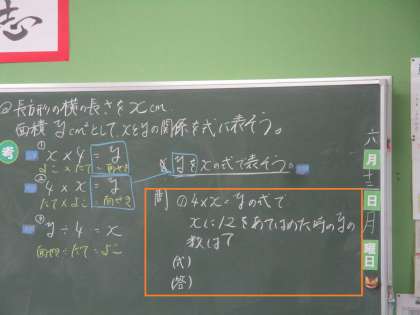 志
② 長方形の横の長さをxcm
面積ycm²として、xとyの関係を式に表そう。
考
① x×4=y
よこ×たて=面せき
② 4×x=y
たて×よこ=面せき
③ y÷4=x
面せき÷たて=よこ
yをxの式で表そう。
問 ① 4×x=yの式で
xに12をあてはめた時のyの
数は?
(式)
(答)
六
月
十二
日
月
曜
日